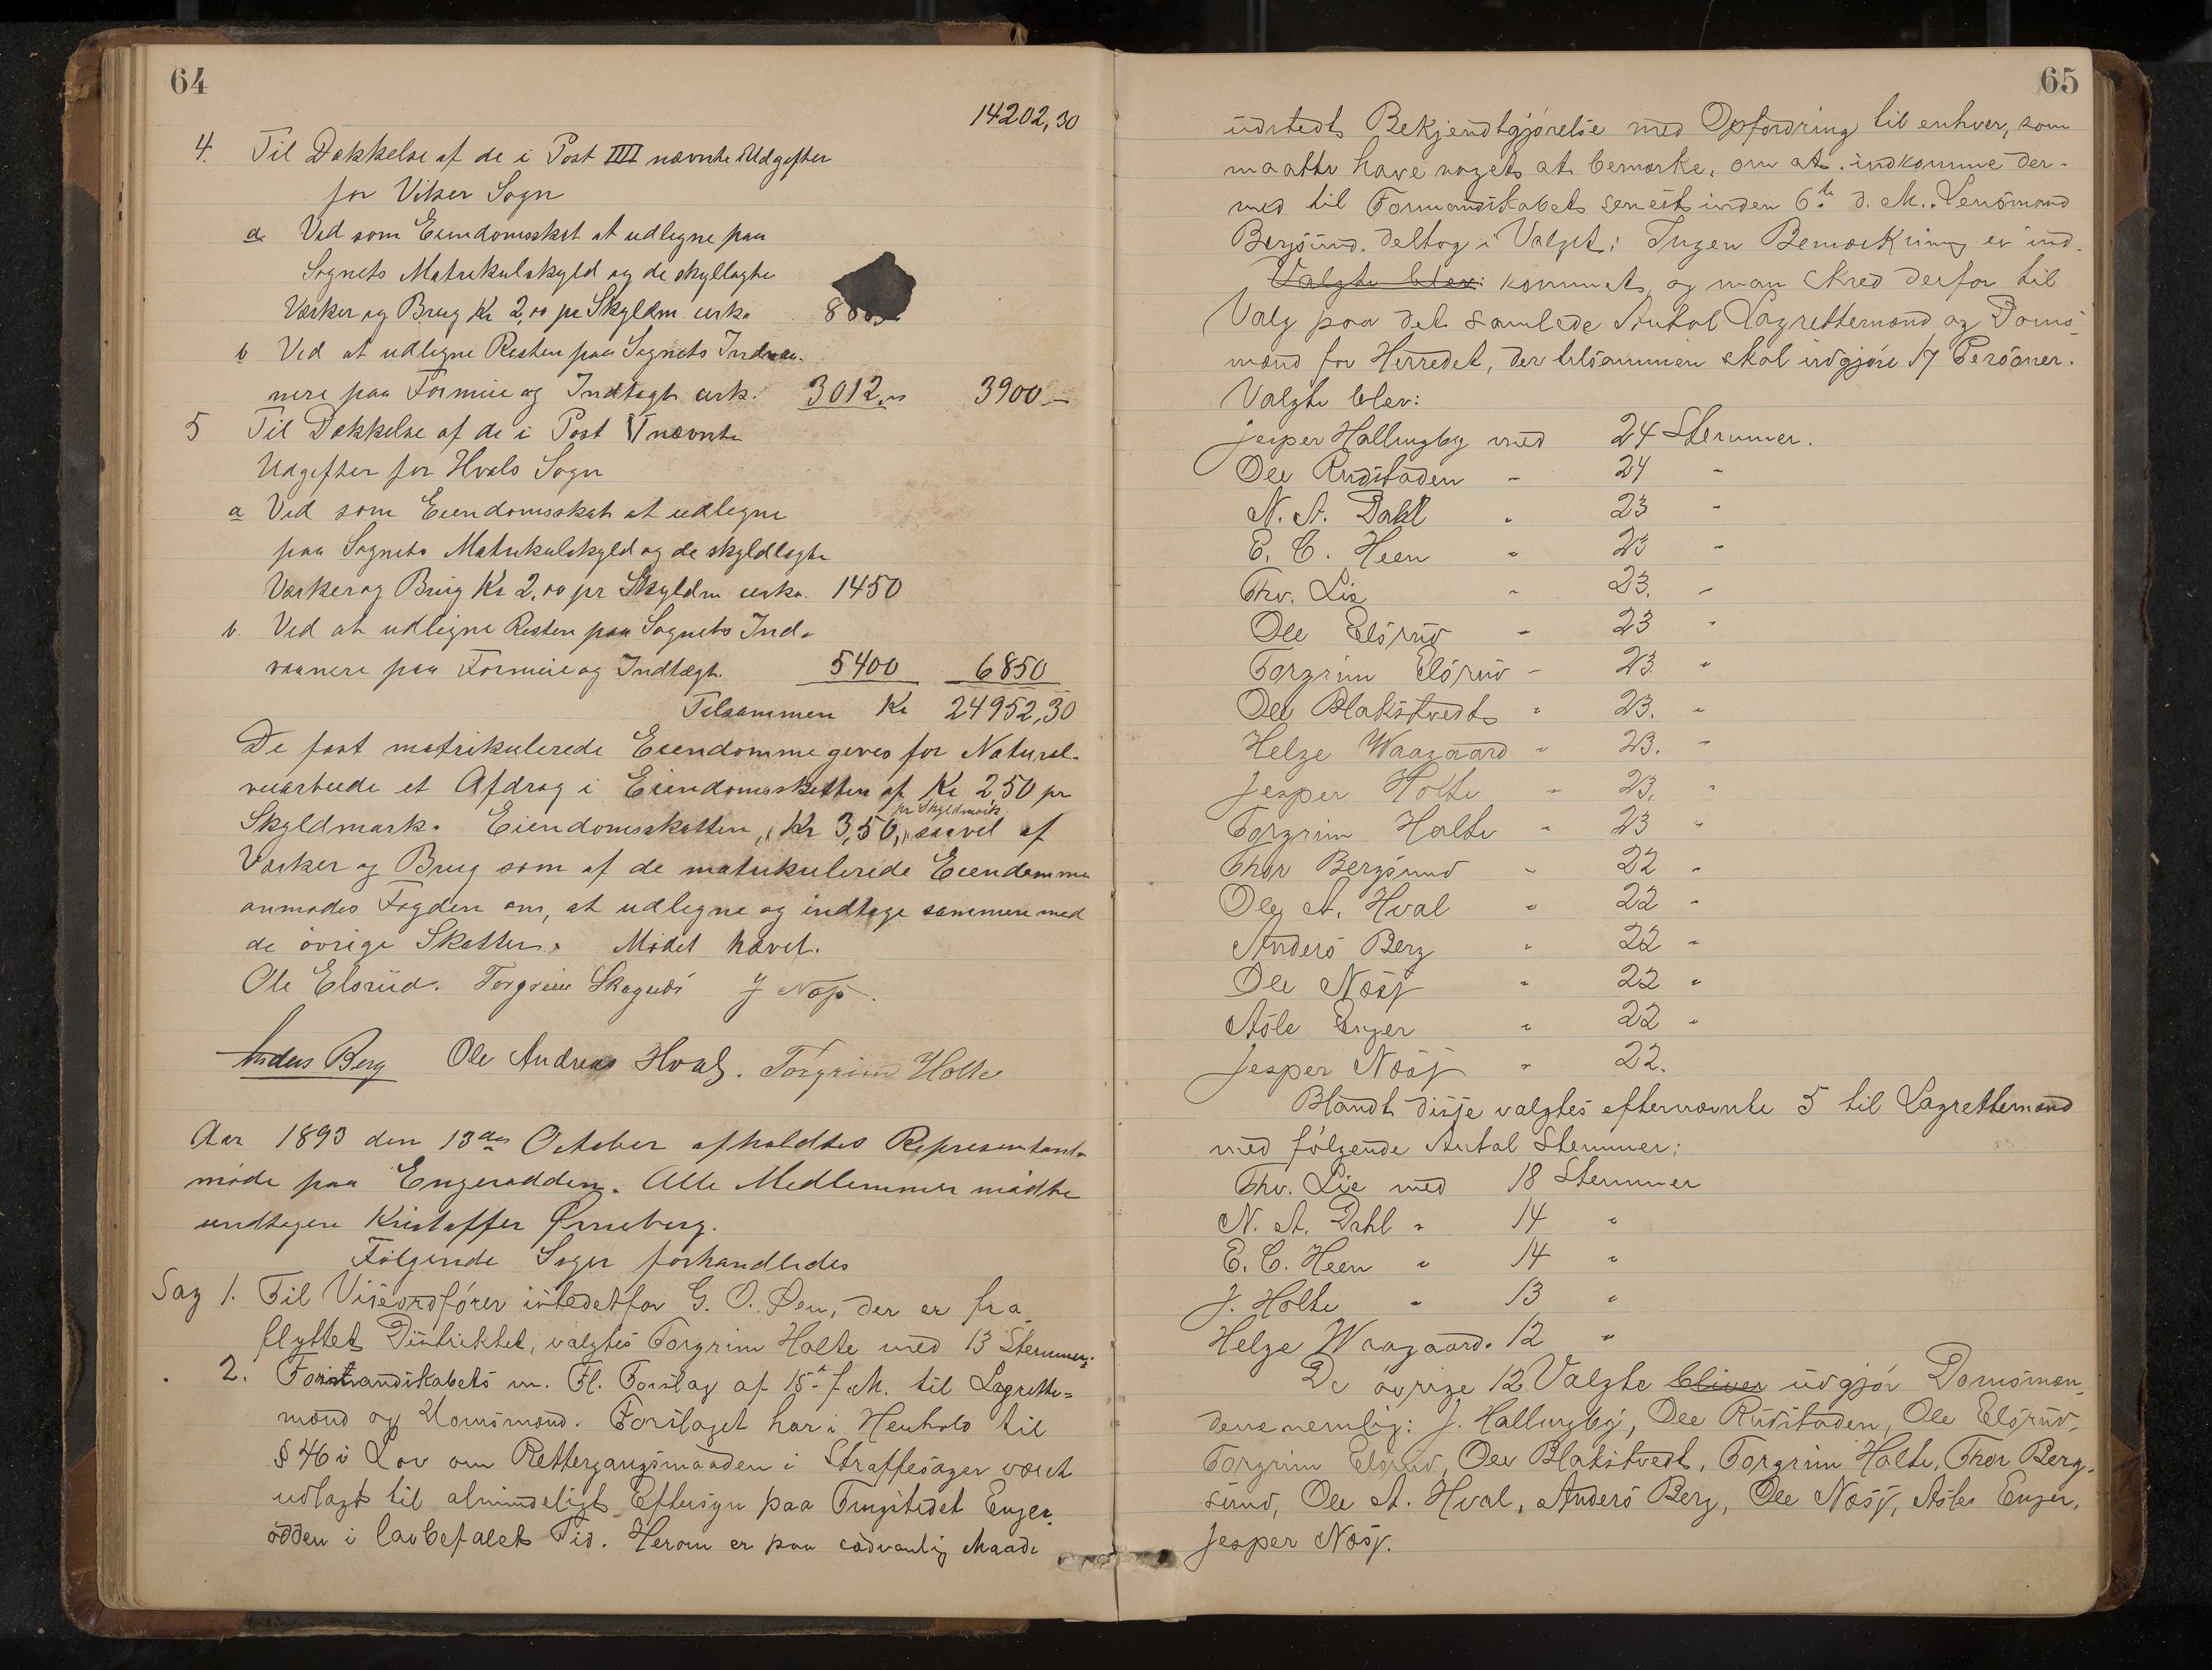 64
14202,30
4. Til Dækkelse af de i Post IIII nævnte Udgifter
for Viker Sogn
a Ved som Eiendomsskat at udlegne paa
Sognets Matrikulskyld og de skyllagte
Værker og Brug Kr 2,00 pr Skyldm cirka
b Ved at udlegne Resten paa Sognets Indvaa-
nere paa Formue og Indtægt cirk. 3012,- 3900,-
5 Til Dækkelse af de i Post V nævnte
Udgifter for Hvals Sogn
a Ved som Eiendomsskat at udlegne
paa Sognets Matrikulskyld og de skyldlagte
Værker og Brug Kr 2,00 pr Skyldm cirka. 1450
b. Ved at udligne Resten paa Sognets Ind-
vaanere paa Formue og Indtægt. 5400 6850
Tilsammen Kr 24952,30
De fast matrikulerede Eiendomme gives for Natural-
veiarbeide et Afdrag i Eiendomsskatten af Kr 2 50 pr
Skyldmark. Eiendomsskatten, Kr 3,50, pr Skyldmark, saavel af
Værker og Brug som af de matrikulerede Eiendomme
anmodes Fogden om, at udlegne og indtage sammen med
de øvrige Skatter. Mødet hævet.
Ole Elsrud. Torgrim Skagnæs J Næss.
Anders Berg Ole Andreas Hval. Torgrim Holte
Aar 1893 den 13de October afholdtes Representant-
møde paa Engerodden. Alle Medlemmer mødte
undtagen Kristoffer Ørneberg.
Følgende Sager forhandledes
Sag 1. Til Viseordfører istedetfor G. O. Øen, der er fra-
flyttet Distriktet, valgtes Torgrim Holte med 13 Stemmer.
2. Formandskabets m. Fl. Forslag af 15de f. M. til Lagrette-
mænd og Domsmænd. Forslaget har i Henhold til
§ 46 i Lov om Rettergangsmaaden i Straffesager været
udlagt til almindeligt Eftersyn paa Tingstedet Enger-
odden i lovbefalet Tid. Herom er paa sædvanlig Maade
65
udstedt Bekjendtgjørelse med Opfordring til enhver, som
maatte have noget at bemærke, om at indkomme der-
med til Formandskabet senest inden 6te d. M. Lensmand
Bergsund deltog i Valget: Ingen Bemærkning er ind-
Valgte blev: kommet, og man skred derfor til
Valg paa det samlede Antal Lagrettemænd og Doms-
mænd for Herredet, der tilsammen skal udgjøre 17 Personer.
Valgte blev:
Jesper Hallingby med 24 Stemmer.
Ole Rudstaden - 24 -
N. A. Dahl - 23 -
E. C. Heen - 23 -
Thv. Lie - 23. -
Ole Elsrud - 23 -
Torgrim Elsrud - 23. -
Ole Blakstvedt - 23. -
Helge Waagaard - 23. -
Jesper Holte - 23. -
Torgrim Holte - 23 -
Thor Bergsund - 22 -
Ole A. Hval - 22 -
Anders Berg - 22 -
Ole Næss - 22 -
Asle Enger - 22 -
Jesper Næss - 22.
Blandt disse valgtes efternævnte 5 til Lagrettemænd
med følgende Antal Stemmer:
Thv. Lie med 18 Stemmer
N. A. Dahl - 14 -
E. C. Heen - 14 -
J. Holte - 13 -
Helge Waagaard - 12 -
De øvrige 12 Valgte bliver udgjør Domsmæn-
dene nemlig: J. Hallingby, Ole Rudstaden, Ole Elsrud,
Torgrim Elsrud, Ole Blakstvedt, Torgrim Holte, Thor Berg-
sund, Ole A. Hval, Anders Berg, Ole Næss, Asle Enger,
Jesper Næss.